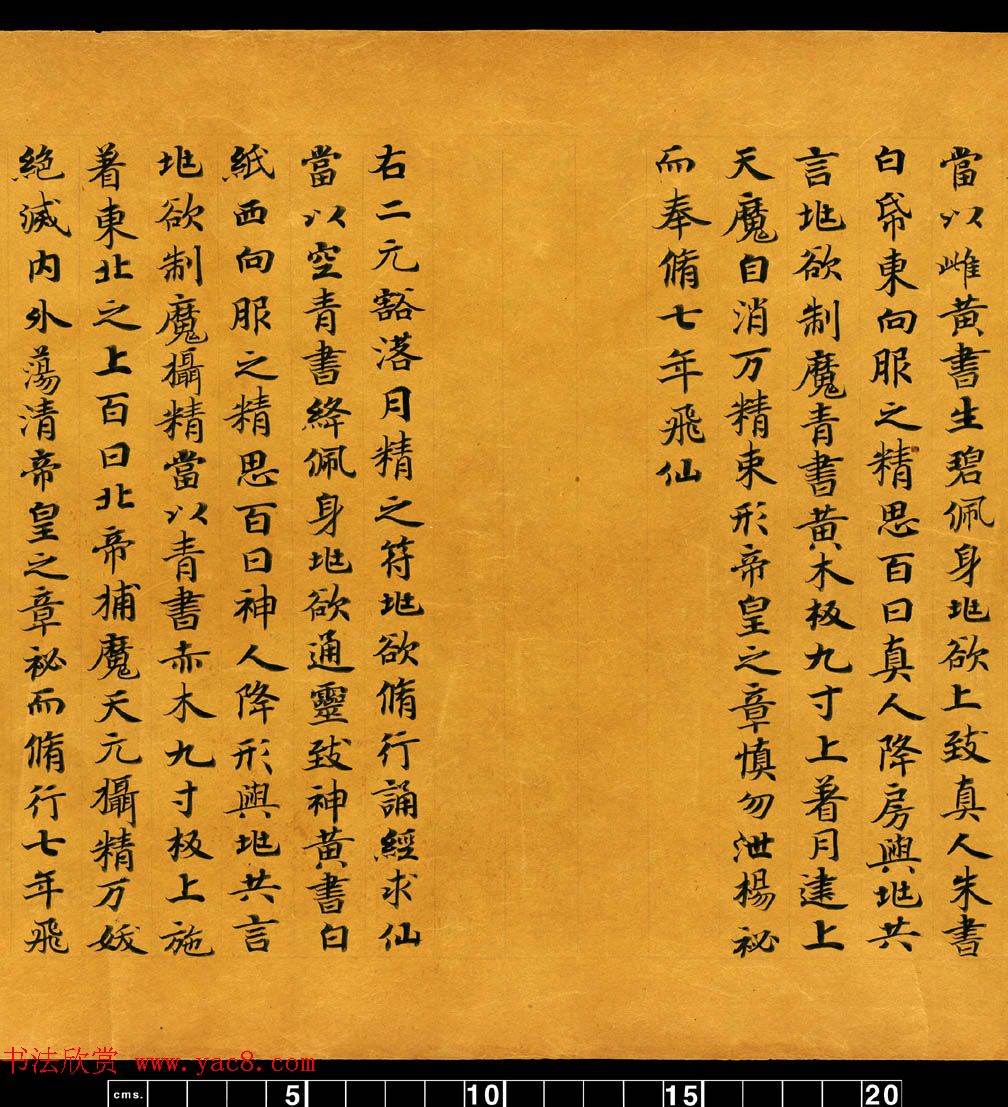 當以雌黃書生碧佩身兆欲上致真人朱書
白帋東向服之精思百日真人降房與兆共
言兆欲制魔青書黃木板九寸上著月建上
天魔自消万精束形帝皇之章慎勿泄楊祕
而奉脩七年飛仙
右二元豁落月精之符兆欲脩行誦經求仙
當以空青書絳佩身兆欲通靈致神黃書白
紙西向服之精思百日神人降形與兆共言
兆欲制魔攝精當以青書赤木九寸板上施
著東北之上百日北帝捕魔天元攝精万妖
絕滅內外蕩清帝皇之章祕而脩行七年飛
书法欣赏 www.yac8.com
cms. 5 10 15 20